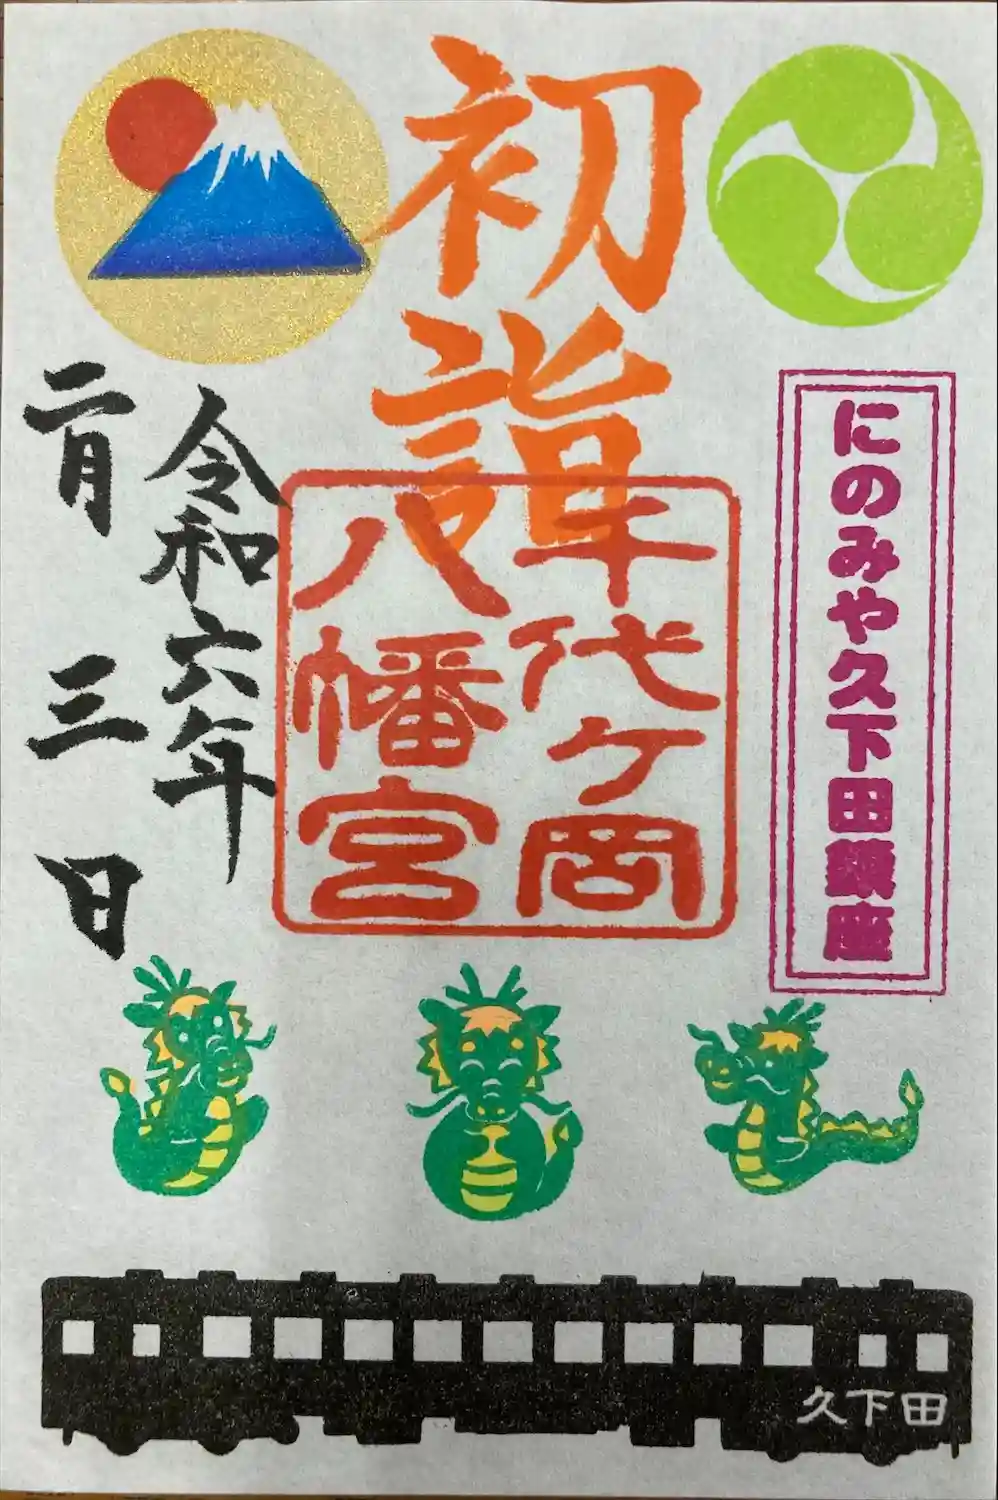 初詣
にのみや久下田鎮座
千代ヶ岡
八幡宮
令和六年
二月三日
久下田